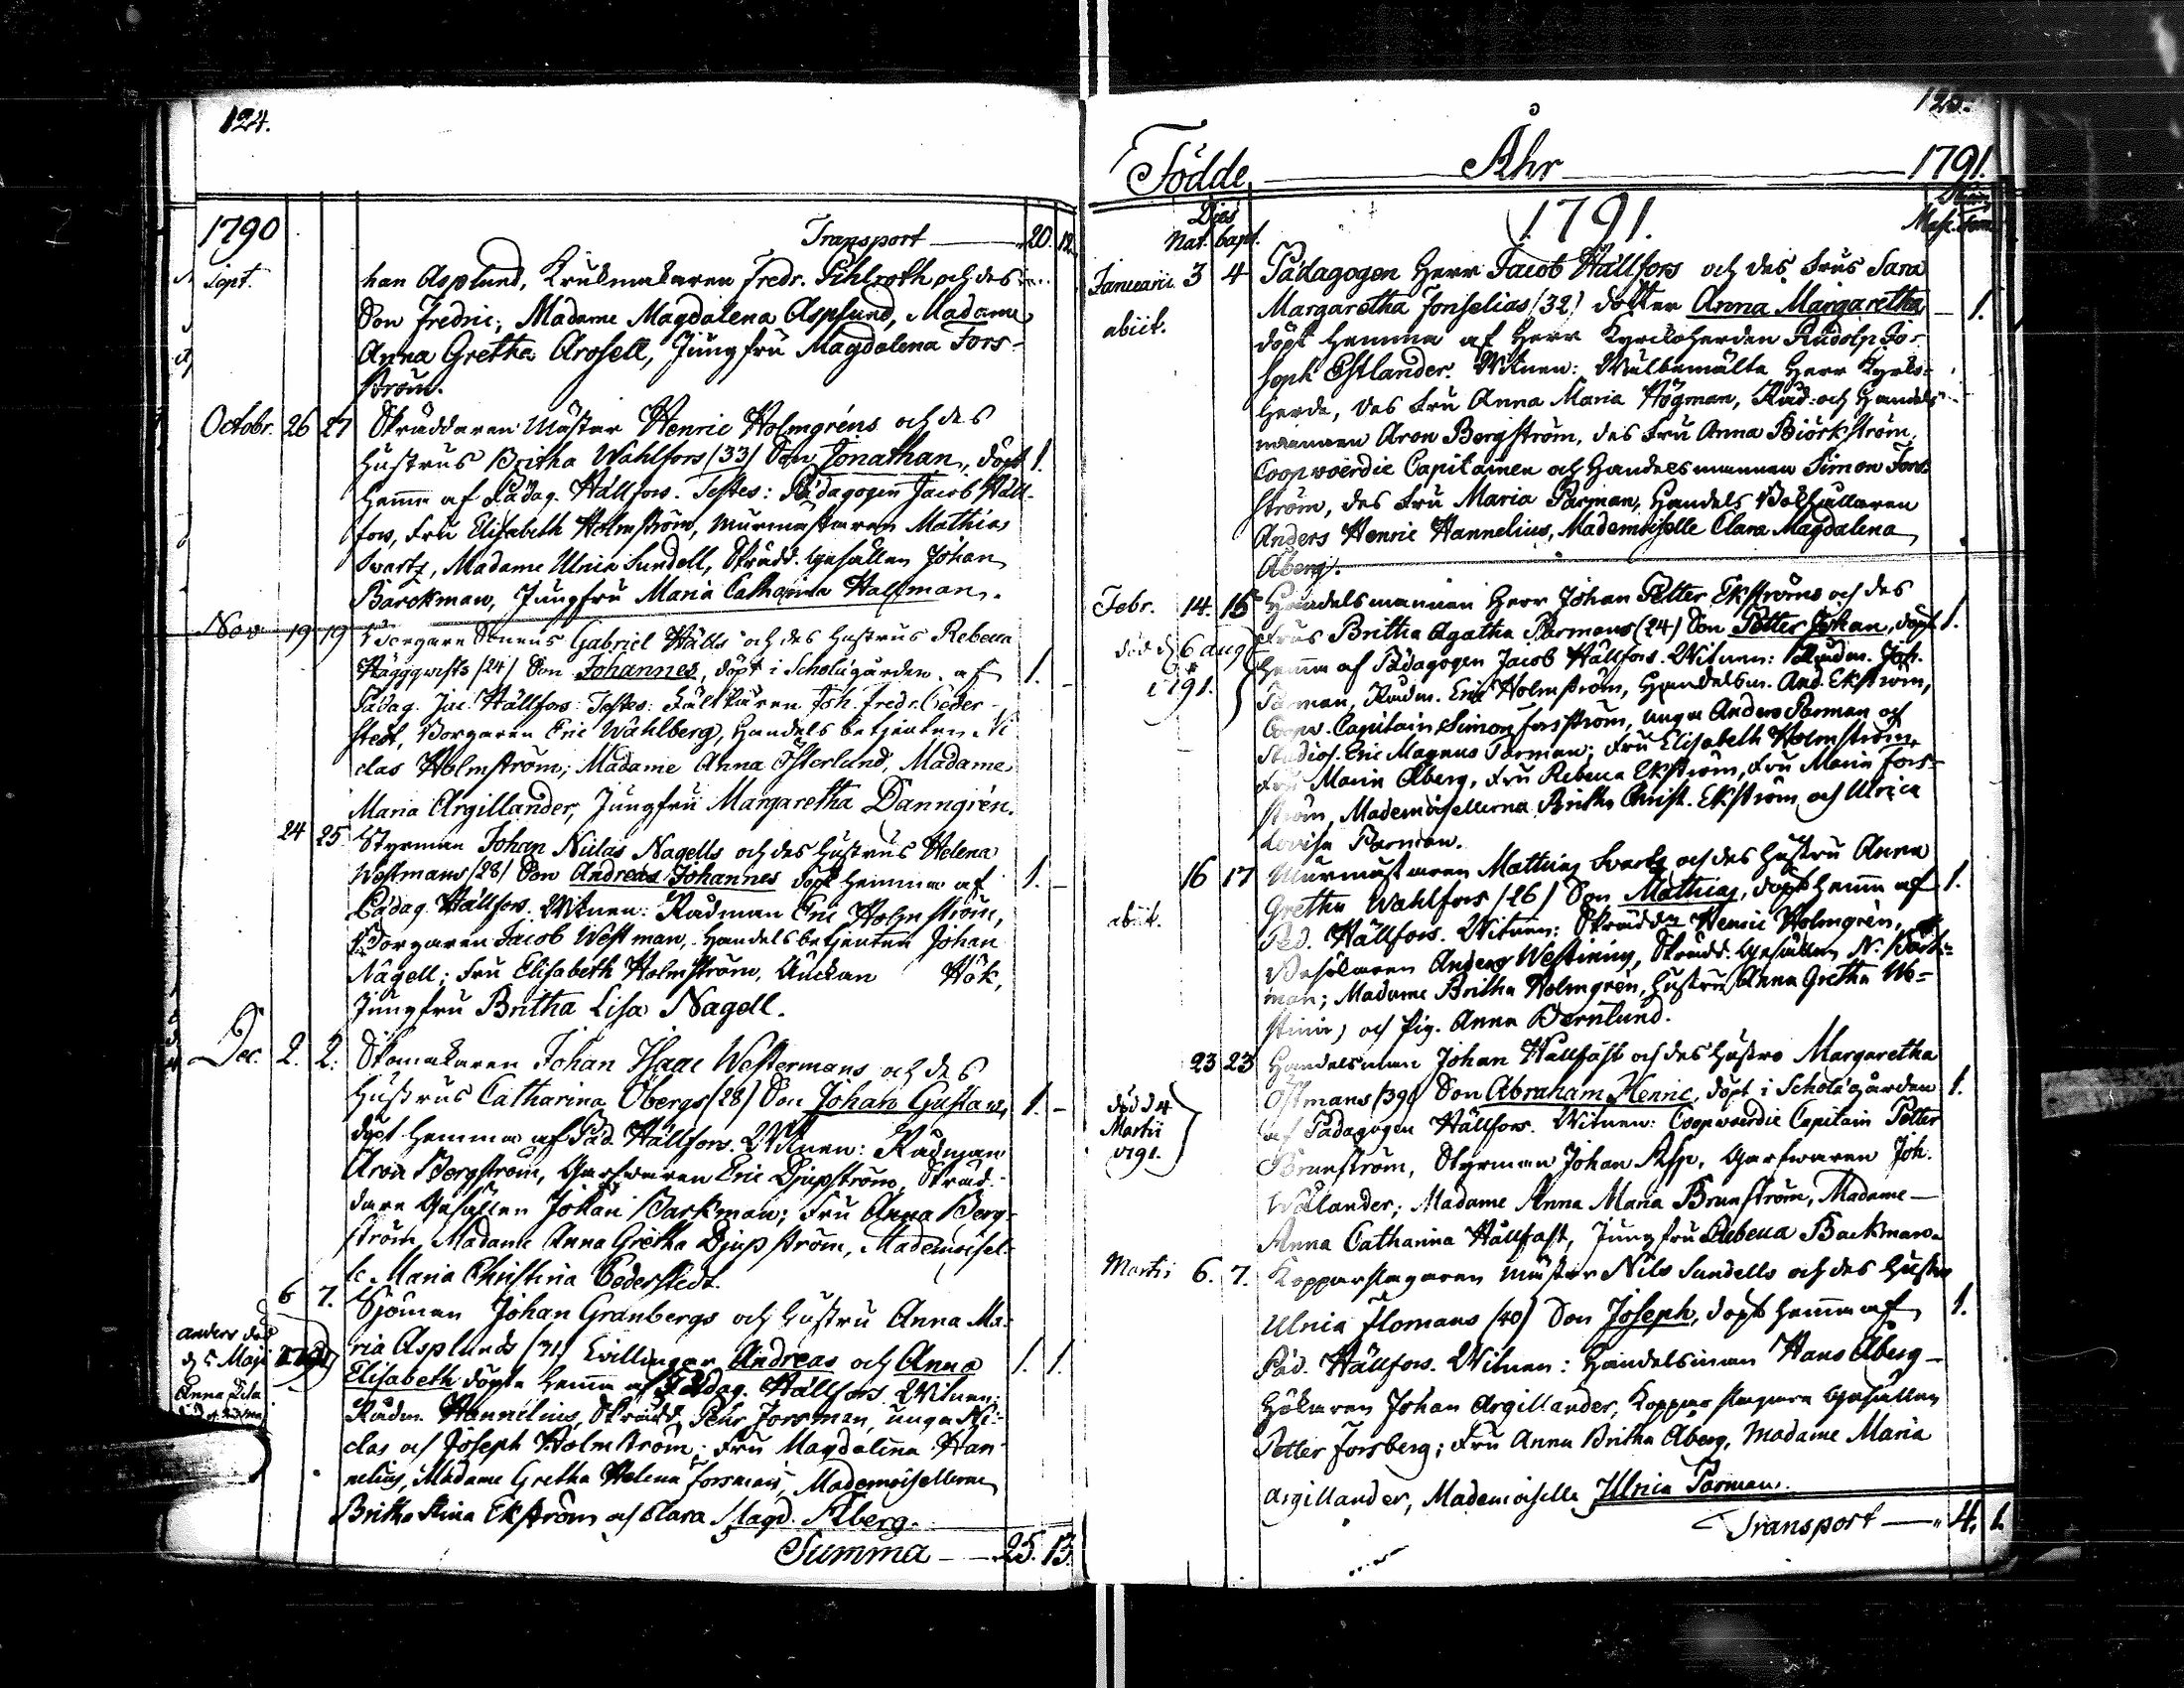 124.
1790 Transport 20. 12.
Sept. han Asplund, Krukmakaren Fredr. Pihlroth och des
Son Fredric; Madame Magdalena Asplund, Madame
Anna Gretha Arosell, Jungfru Magdalena Fors-
ström.
Octobr. 26 27 Skräddaren Mästar Henric Holmgréns och des
Hustrus Britha Wahlfors (33) Son Jonathan, döpt 1.
hema af Pädag. Hällfors. Testes: Pädagogen Jacob Häll-
fors, Fru Elisabeth Holmström, Murmästaren Mathias
Swartz, Madame Ulrica Sundell, Skrädd. Gesällen Johan
Barckman, Jungfru Maria Catharina Hallman.
Nov. 19 19 Borgare Sonens Gabriel Hälls och des Hustrus Rebecca
Häggqwists (24) Son Johannes, döpt i Scholägården af 1. -
Pädag. Jac. Hällfors. Testes: Fältskären Joh. Fredr. Ceder-
stedt, Borgaren Eric Wahlberg, Handels betjenten Ni-
clas Holmström; Madame Anna Österlund, Madame
Maria Argillander, Jungfru Margaretha Danngrén.
24 25 Styrman Johan Niclas Nagells och des Hustrus Helena
Westmans (28) Son Andreas Johannes döpt hemma af 1. -
Pädag. Hällfors. Witnen: Rådman Eric Holmström,
Borgaren Jacob Westman, Handelsbetjenten Johan
Nagell; Fru Elisabeth Holmström, Änckan Hök,
Jungfru Britha Lisa Nagell.
Dec. 2. 2. Skomakaren Johan Isaac Westermans och des
Hustrus Catharina Öbergs (28) Son Johan Gustaw, 1. -
döpt hemma af Päd. Hällfors. Witnen: Rådman
Aron Bergström, Garfwaren Eric Djupström, Skräd-
dare Gesällen Johan Barkman; Fru Anna Berg-
ström, Madame Anna Gretha Djupström, Mademoisel-
le Maria Christina Cederstedt.
6 7. Sjöman Johan Granbergs och Hustru Anna Ma-
anders död ria Asplunds (31) Twillingar Andreas och Anna 1. 1.
d. 5 Maji Elisabeth döpte hema af Pädag. Hällfors. Witnen:
Anna Rådm. Hannelius, Skrädd. Pehr Forsman, unga Ni-
clas och Joseph Holmström; Fru Magdalena Han-
nelius, Madame Gretha Helena Forsman, Mademoisellerne
Britha Stina Ekström och Clara Magd. Åberg.
Summa 25. 13.
125.
Födde Åhr 1791.
Dies Nat. bapt. 1791. Mask. Fem.
Januarii 3 4 Pädagogen Herr Jacob Hällfors och des Frus Sara
Margaretha Forselias (32) dotter Anna Margaretha - 1.
abiit. döpt hemma af Herr Kyrckoherden Rudolp Jo-
seph Estlander. Witnen: Wälbemälte Herr Kyrko-
herde, des Fru Anna Maria Högman, Råd- och Handels-
mannen Aron Bergström, des Fru Anna Biörkström,
Coopvoerdie Capitainen och Handelsmannen Simon Fors-
ström, des Fru Maria Parman, Handels Bokhållaren
Anders Henric Hannelius, Mademoiselle Clara Magdalena
Åberg.
Febr. 14. 15 Handelsmannen Herr Johan Petter Ekströms och des
Frus Britha Agatha Parmans (24) Son Petter Johan, döpt 1.
död d 6 aug hemma af Pädagogen Jacob Hällfors. Witnen: Rådm. Joh.
1791. Parman, Rådm. Eric Holmström, Handelsm. And. Ekström,
Coopv. Capitain Simon Forsström, unga Anders Parman och
Studios. Eric Magnus Parman; Fru Elisabeth Holmström,
Fru Maria Åberg, Fru Rebecca Ekström, Fru Maria Fors-
ström, Mademoisellerna Britha Christ. Ekström och Ulrica
Lovisa Parman.
16 17 Murmästaren Mathias Svartz och des Hustru Anna
Gretha Wahlfors (26) Son Mathias, döpt hema af 1.
abiit. Päd. Hällfors. Witnen: Skrädd Henric Holmgrén,
Anders Westining, Skrädd. Gesällen N:
man; Madame Britha Holmgrén, Hustru Anna Gretha We-
stinin, och Pig. Anna Bernlund.
23 23 Handelsman Johan Hällfast och des Hustro Margaretha
Östmans (39) Son Abraham Henric, döpt i Scholägården 1.
död d 4 Martii 1791. af Pädagogen Hällfors. Witnen: Coopvoerdie Capitain Petter
Brunström, Styrman Johan Asp, Garfwaren Joh.
Wälander; Madame Anna Maria Brunström, Madame
Anna Catharina Hällfast, Jungfru Rebecca Backman.
Martii 6. 7. Kopparslagaren Mäster Nils Sundells och des Hustru
Ulrica Flomans (40) Son Joseph, döpt hema af 1.
Päd. Hällfors. Witnen: Handelsman Hans Åberg
Hökaren Johan Argillander, Kopparslagare Gesällen
Petter Forsberg; Fru Anna Britha Åberg, Madame Maria
Argillander, Mademoiselle Ulrica Parman.
Transport 4. 1.